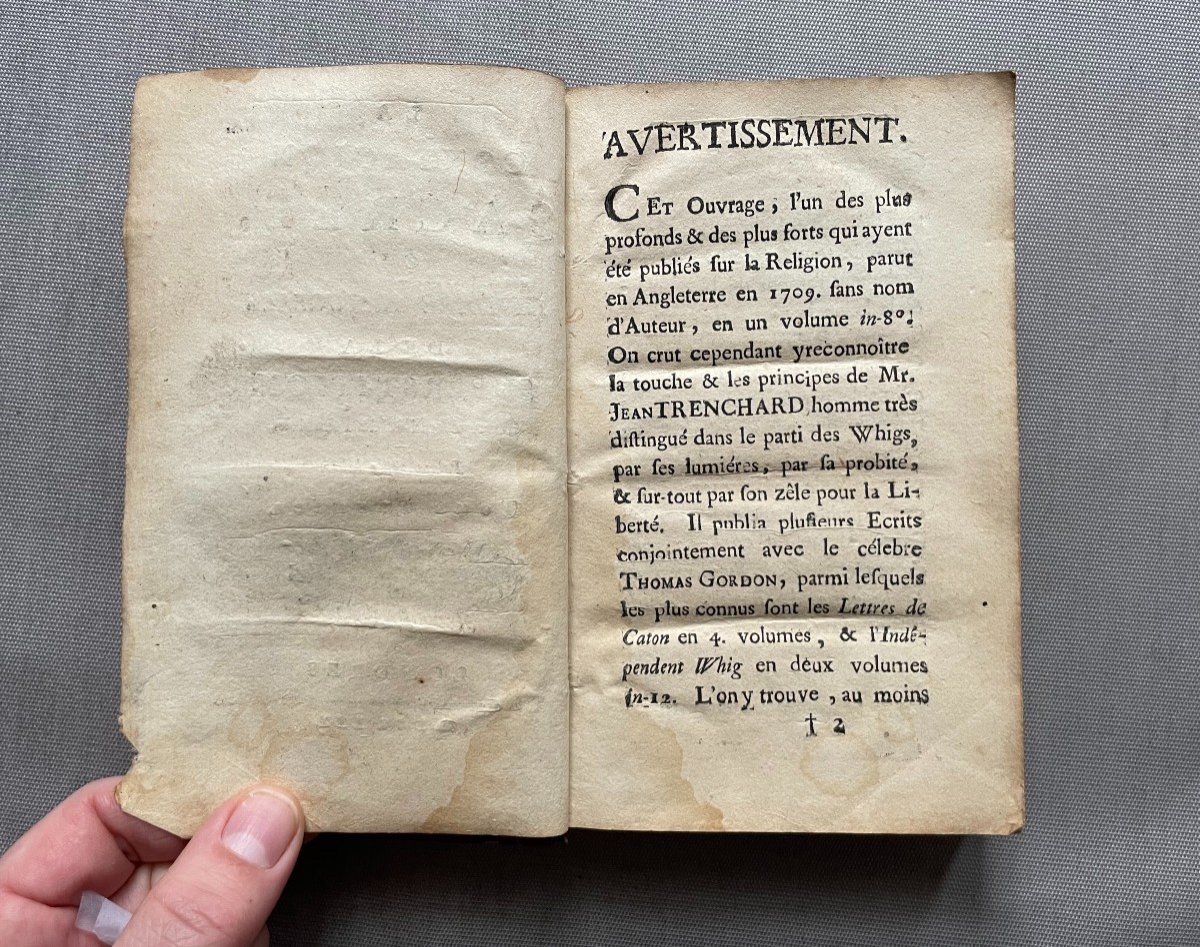 AVERTISSEMENT.
CET Ouvrage, l'un des plus
profonds & des plus forts qui ayent
été publiés ſur la Religion, parut
en Angleterre en 1709. ſans nom
d'Auteur, en un volume in-8°.
On crut cependant yreconnoître
la touche & les principes de Mr.
JEAN TRENCHARD homme très
diſtingué dans le parti des Whigs,
par ſes lumiéres, par ſa probité,
& ſur-tout par ſon zêle pour la Li-
berté. Il publia pluſieurs Ecrits
conjointement avec le célebre
THOMAS GORDON, parmi leſquels
les plus connus ſont les Lettres de
Caton en 4. volumes, & l'Indé-
pendent Whig en deux volumes
in-12. L'on y trouve, au moins
† 2